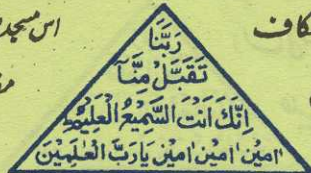 اس مسجد
کاف
رَبَّنَا
تَقَبَّلْ مِنَّا
اِنَّكَ اَنْتَ السَّمِيْعُ الْعَلِيْمُ
اٰمِيْن اٰمِيْن اٰمِيْن يَارَبَّ الْعٰلَمِيْنَ